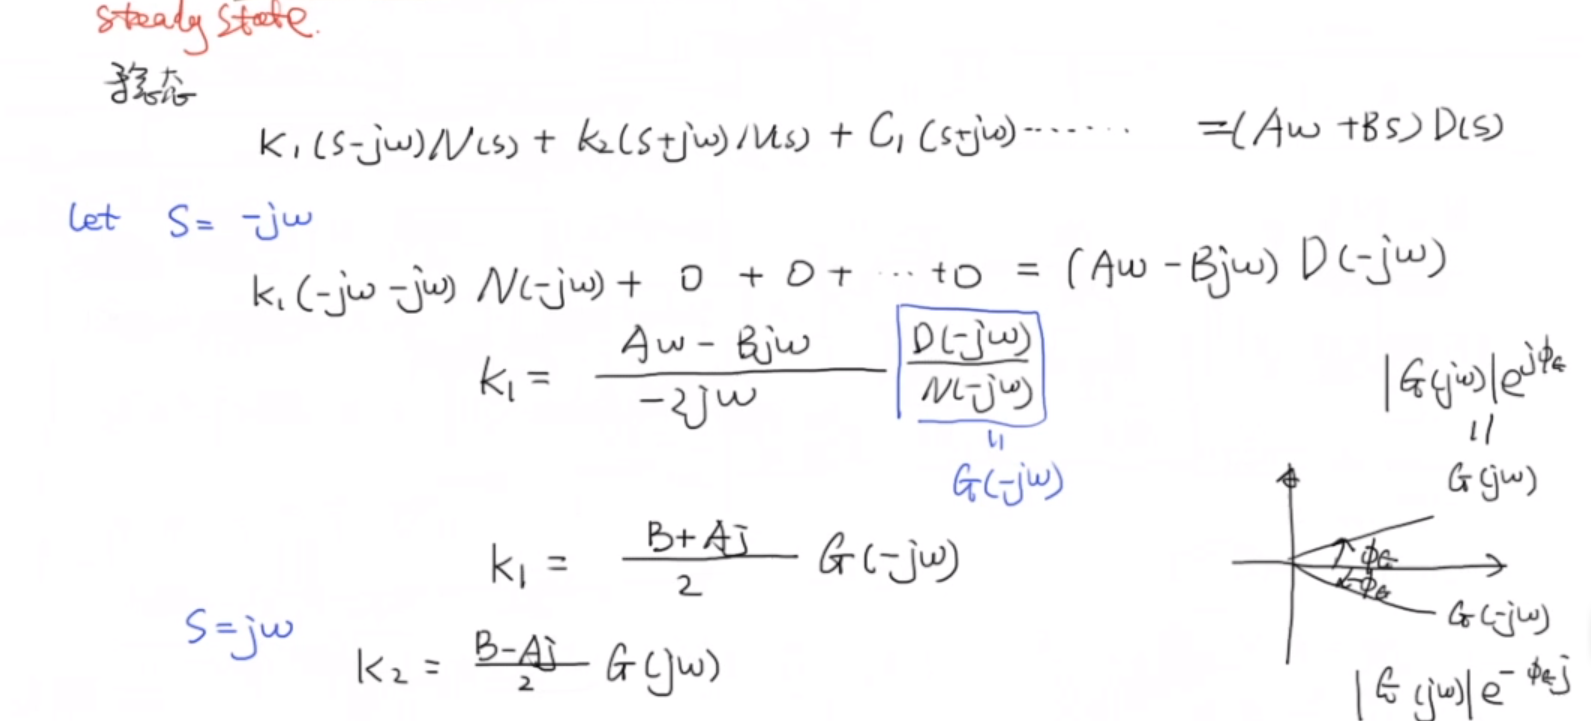 steady state.
稳态
K₁(s-jω)N(s) + k₂(s+jω)N(s) + C₁(s+jω)······· =(Aω+Bs)D(s)
let S= -jω
k₁(-jω-jω) N(-jω) + 0 + 0 + ··· +0 = (Aω-Bjω) D(-jω)
k₁ = (Aω - Bjω)/(-2jω) D(-jω)/N(-jω)
|G(jω)|e^{jϕ_G}
=
=
G(-jω)
G(jω)
k₁ = (B+Aj)/2 G(-jω)
ϕ_G
-ϕ_G
G(-jω)
S=jω
K₂ = (B-Aj)/2 G(jω)
|G(jω)|e^{-ϕ_G j}